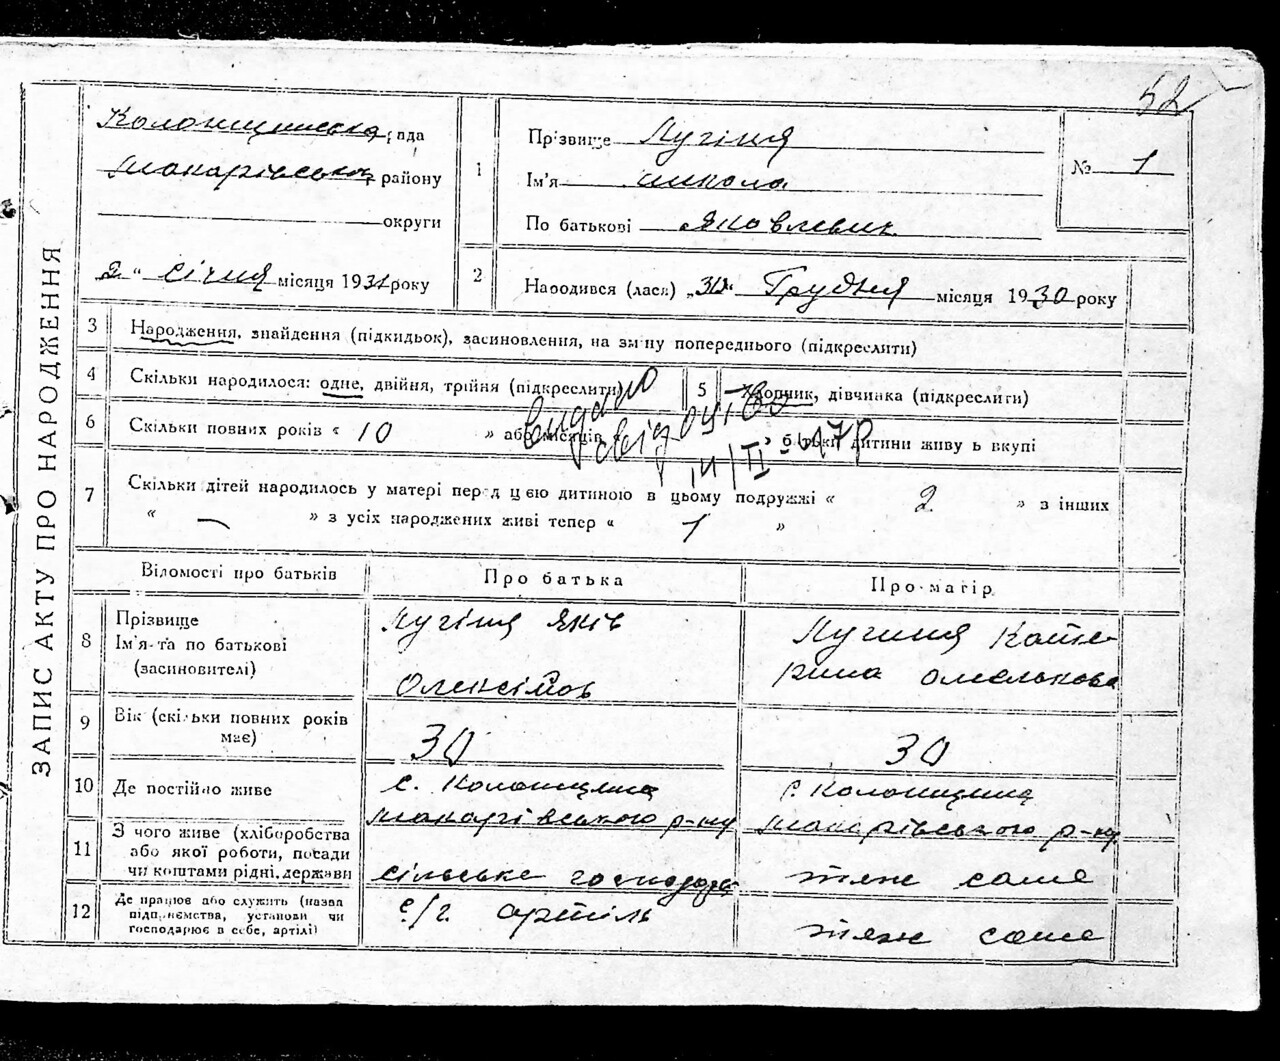 52
ЗАПИС АКТУ ПРО НАРОДЖЕННЯ
Колонщинська рада
Макарівського району
округи
"2" січня місяця 1931 року
1
Прізвище Лугіня
Ім'я Микола
По батькові Яковлевич
№ 1
2
Народився (лася) „30" Грудня місяця 1930 року
3 Народження, знайдення (підкидьок), засиновлення, на зміну попереднього (підкреслити)
4 Скільки народилося: одне, двійня, трійня (підкреслити)
5 Хлопчик, дівчинка (підкреслити)
6 Скільки повних років « 10 » або місяців « » батьки дитини живуть вкупі
видано
свідоцтво
14/II-47р
7 Скільки дітей народилось у матері перед цією дитиною в цьому подружжі « 2 » з інших
« — » з усіх народжених живі тепер « 1 »
Відомості про батьків
Про батька
Про матір
8 Прізвище
Ім'я та по батькові
(засиновителі)
Лугіня Яків
Олексійов
Лугиня Кате-
рина Омелькова
9 Вік (скільки повних років
має)
30
30
10 Де постійно живе
с. Колонщина
Макарівського р-ну
с. Колонщина
Макарівського р-ну
11 З чого живе (хліборобства
або якої роботи, посади
чи коштами рідні, держави
сільське господар
теж саме
12 Де працює або служить (назва
підприємства, установи чи
господарює в себе, артілі)
с/г. артіль
теж саме